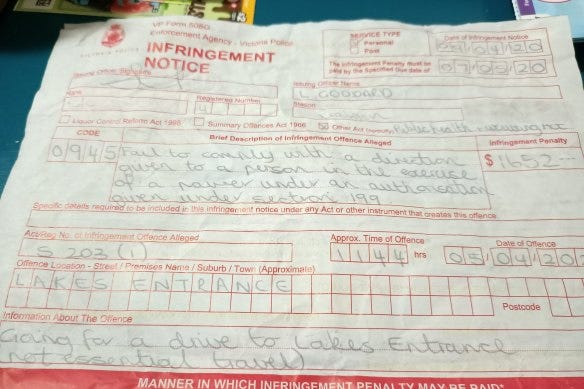 VP Form 505G
Enforcement Agency - Victoria Police
VICTORIA POLICE
INFRINGEMENT
NOTICE
SERVICE TYPE
Personal
Post
Date of Infringement Notice
The Infringement Penalty must be
paid by the Specified Due date of
Issuing Officer Signature
Issuing Officer Name
L GODDARD
Rank
Registered Number
Station
Liquor Control Reform Act 1998
Summary Offences Act 1966
Other Act (specify) Public health
CODE
Brief Description of Infringement Offence Alleged
Infringement Penalty
0945
Fail to comply with a direction
$1652
given to a person in the exercise
of a power under an authorisation
given under section 199
Specific details required to be included in this infringement notice under any Act or other instrument that creates this offence
Act/Reg No. of Infringement Offence Alleged
Approx. Time of Offence
Date of Offence
S 203 (1)
1144 hrs
05/04/20
Offence Location - Street / Premises Name / Suburb / Town (Approximate)
LAKES ENTRANCE
Postcode
Information About The Offence
Going for a drive to Lakes Entrance
(not essential travel)
MANNER IN WHICH INFRINGEMENT PENALTY MAY BE PAID